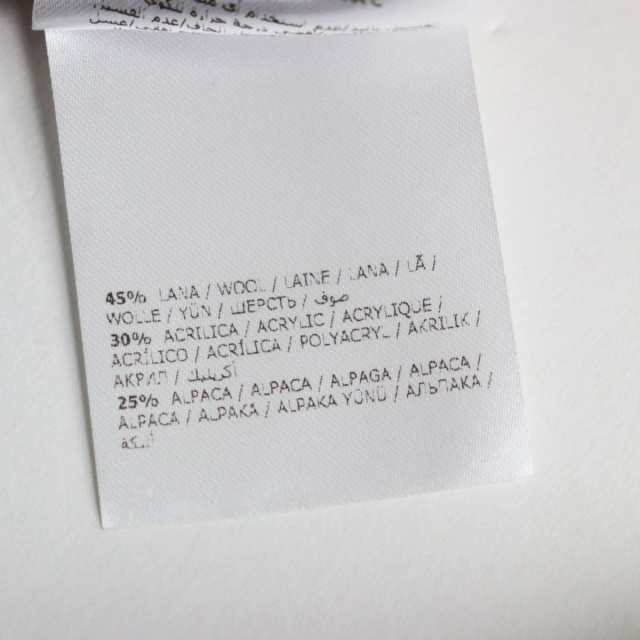 45% LANA / WOOL / LAINE / LANA / LÃ /
WOLLE / YÜN / ШЕРСТЬ / صوف
30% ACRILICA / ACRYLIC / ACRYLIQUE /
ACRÍLICO / ACRÍLICA / POLYACRYL / AKRILIK /
АКРИЛ / أكريليك
25% ALPACA / ALPACA / ALPAGA / ALPACA /
ALPACA / ALPAKA / ALPAKA YÜNÜ / АЛЬПАКА /